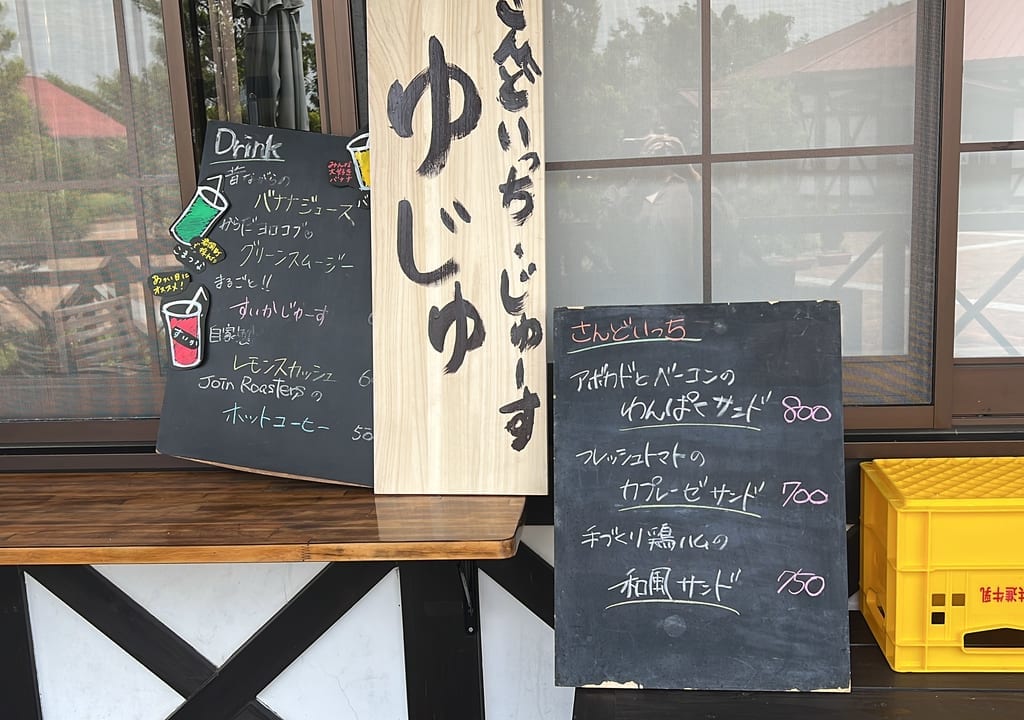 Drink
昔ながらの
バナナジュース
みんな
大好き
バナナ
からだヨロコブ♡
グリーンスムージー
こまつな
まるごと!!
あつい日に
オススメ!
すいかじゅーす
すいか
自家製
レモンスカッシュ 6
Join Roasters の
ホットコーヒー 50
さんどいっち・じゅーす
ゆじゅ
さんどいっち
アボカドとベーコンの
わんぱくサンド 800
フレッシュトマトの
カプレーゼサンド 700
手づくり鶏ハムの
和風サンド 750
共進牛乳